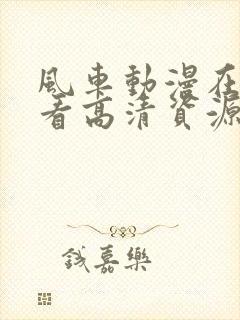 風車動漫在
看高清資源
錢嘉樂